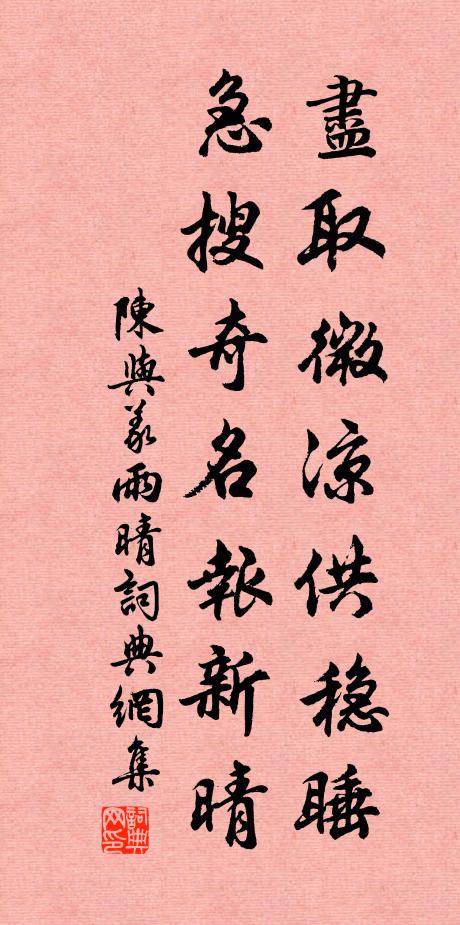 盡取微涼供穩睡
急搜奇名報新晴
陳與義雨晴詞典網集
詞典网印